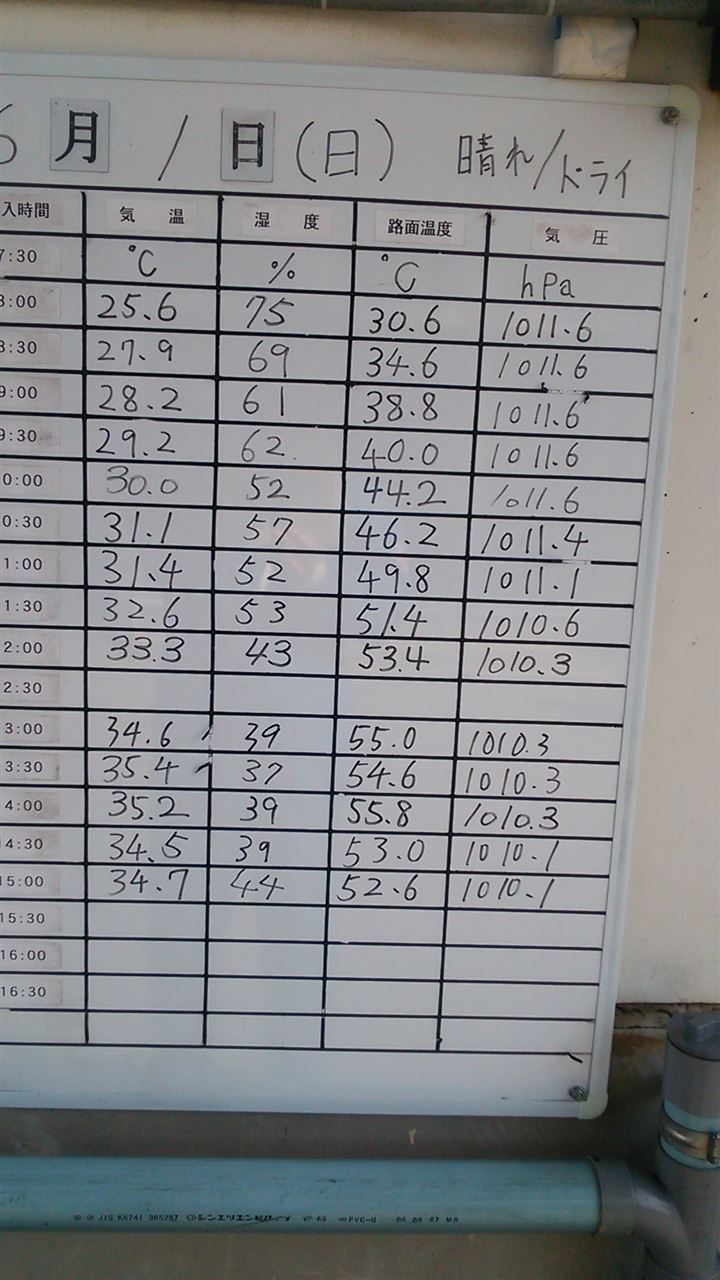 6月 1日(日) 晴れ/ドライ
入時間 気温 湿度 路面温度 気圧
7:30 ℃ % ℃ hPa
8:00 25.6 75 30.6 1011.6
8:30 27.9 69 34.6 1011.6
9:00 28.2 61 38.8 1011.6
9:30 29.2 62. 40.0 1011.6
0:00 30.0 52 44.2 1011.6
0:30 31.1 57 46.2 1011.4
1:00 31.4 52 49.8 1011.1
1:30 32.6 53 51.4 1010.6
2:00 33.3 43 53.4 1010.3
2:30
3:00 34.6 39 55.0 1010.3
3:30 35.4 37 54.6 1010.3
4:00 35.2 39 55.8 1010.3
14:30 34.5 39 53.0 1010.1
15:00 34.7 44 52.6 1010.1
15:30
16:00
16:30
JIS K6741 シンエツエン VP 50 PVC-U